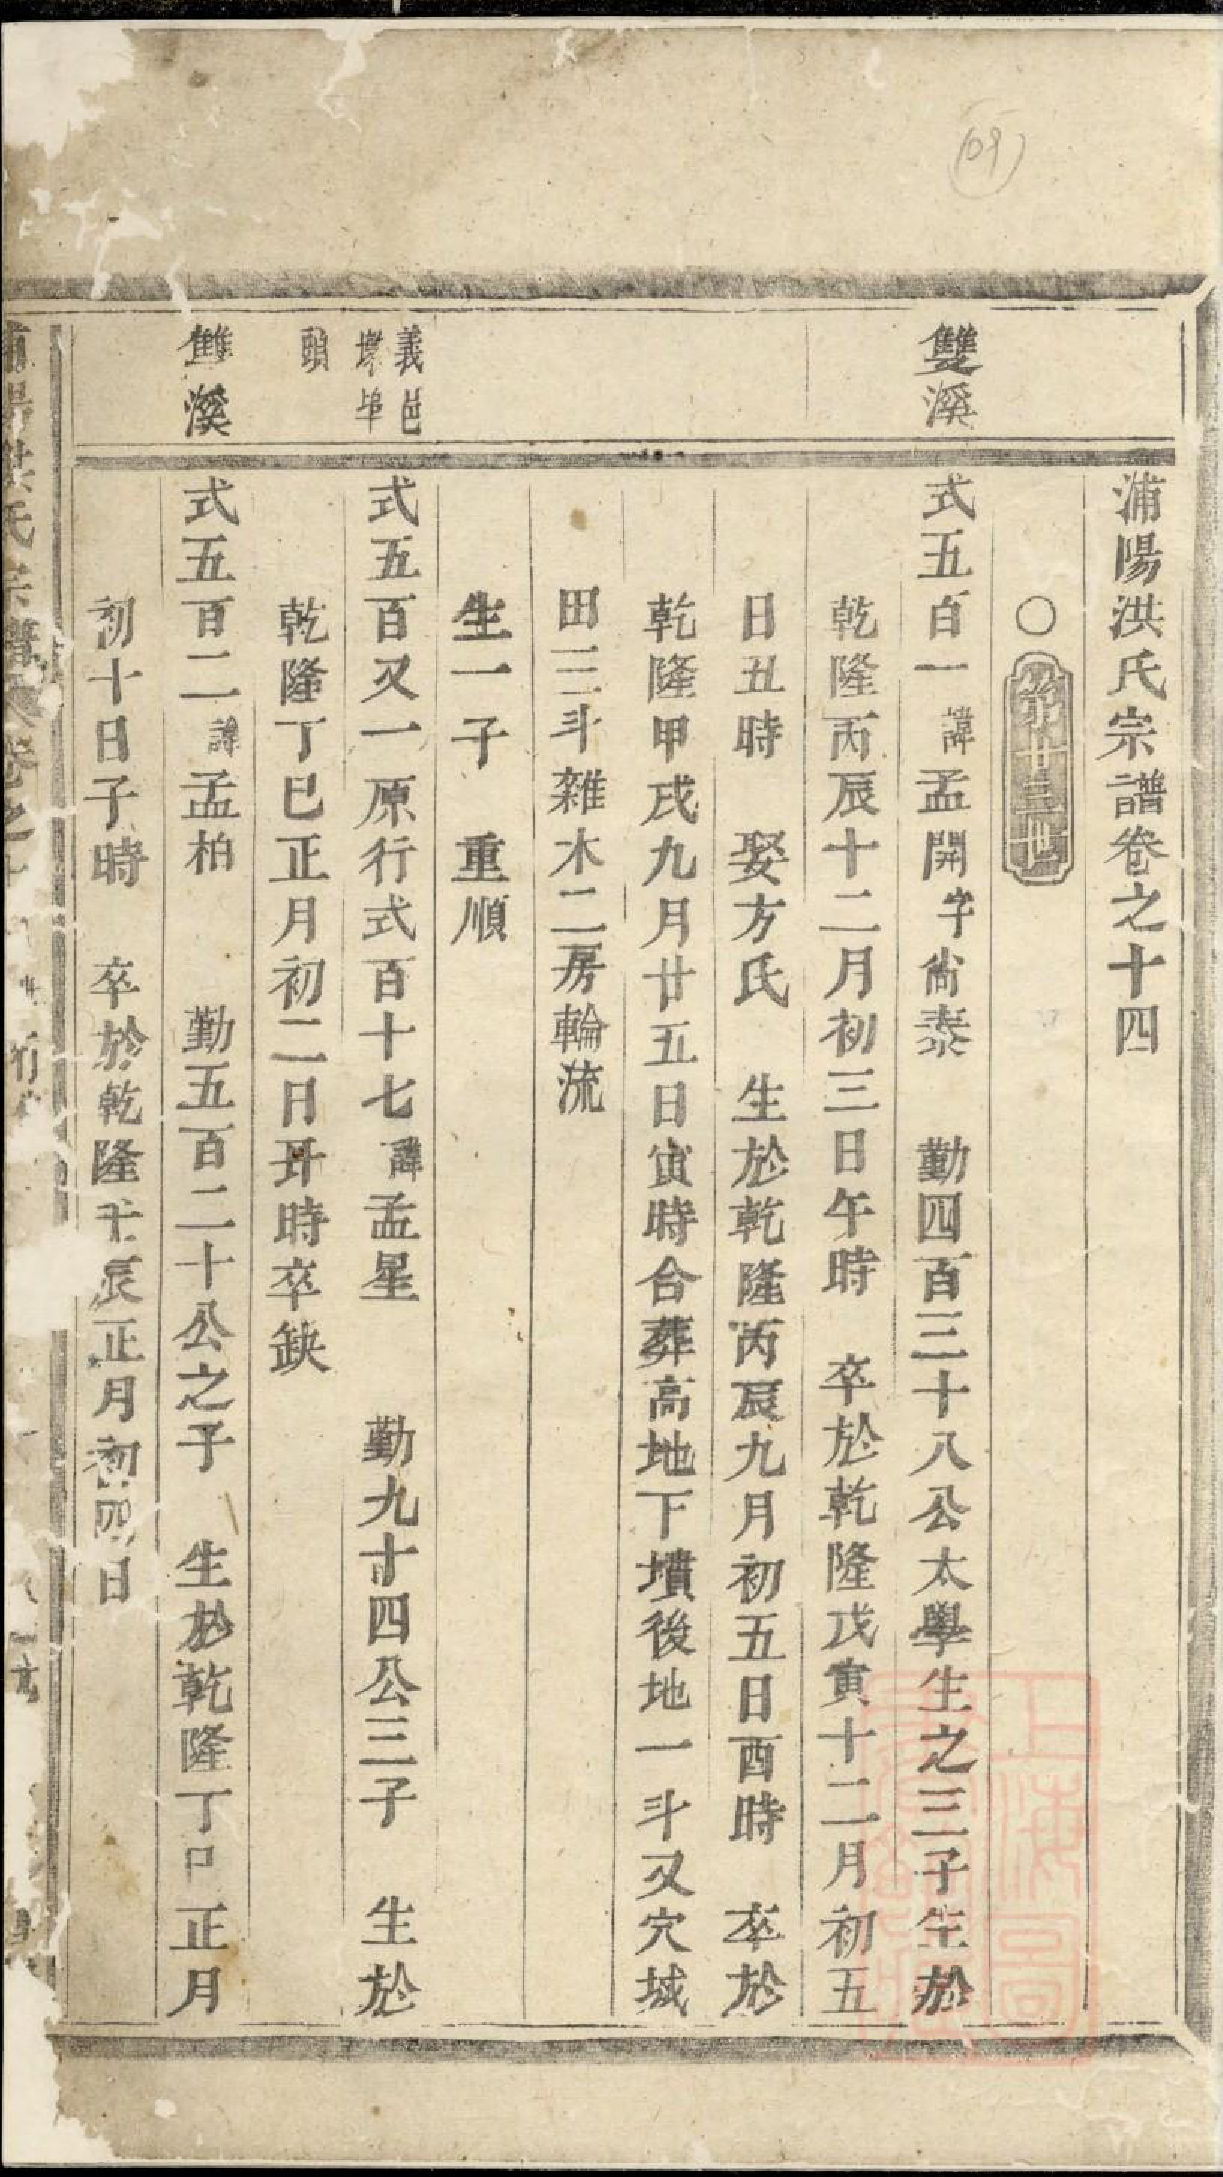 109
浦陽洪氏宗譜卷之十四
○第廿三世
雙溪
式五百一諱孟開字尚泰 勤四百三十八公太學生之三子生於
乾隆丙辰十二月初三日午時 卒於乾隆戊寅十二月初五
日丑時 娶方氏 生於乾隆丙辰九月初五日酉時 卒於
乾隆甲戌九月廿五日寅時合葬高地下墳後地一斗又穴城
田三斗雜木二房輪流
生一子 重順
義邑
埠
頭
式五百又一原行式百十七諱孟星 勤九十四公三子 生於
乾隆丁巳正月初二日丑時卒缺
雙溪
式五百二諱孟柏 勤五百二十公之子 生於乾隆丁巳正月
初十日子時 卒於乾隆壬辰正月初四日
浦陽洪氏宗譜 卷之十
上海圖